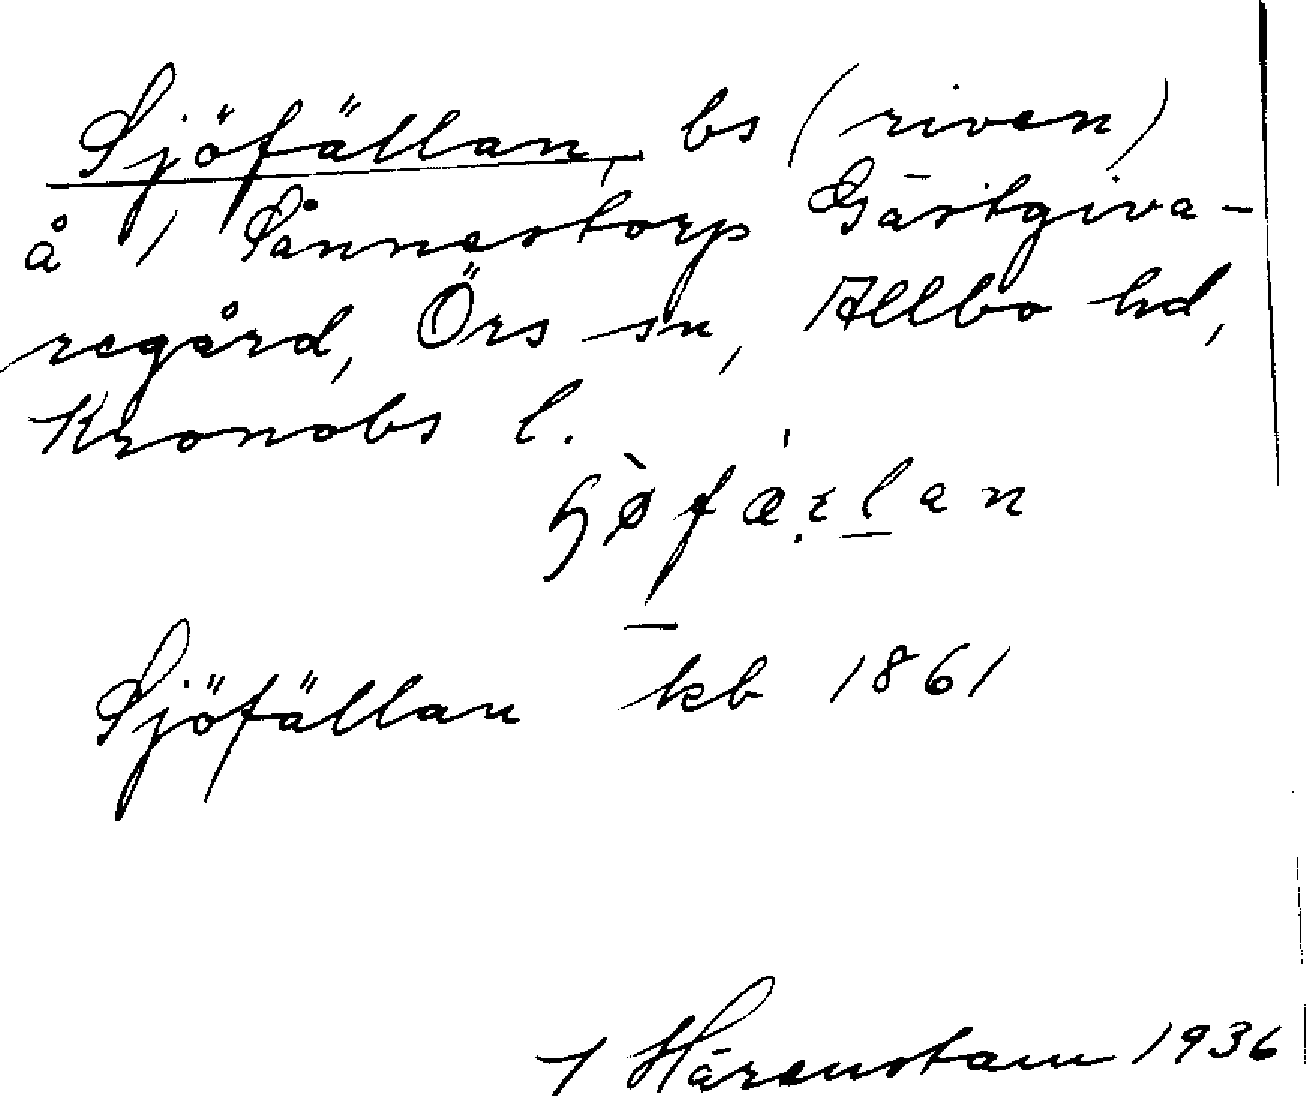 Sjöfällan, bs (riven)
å / Sånnestorp Gästgiva-
regård, Örs sn, Allbo hd,
Kronobs l.
Sjöfällan kb 1861
/ Härenstam 1936